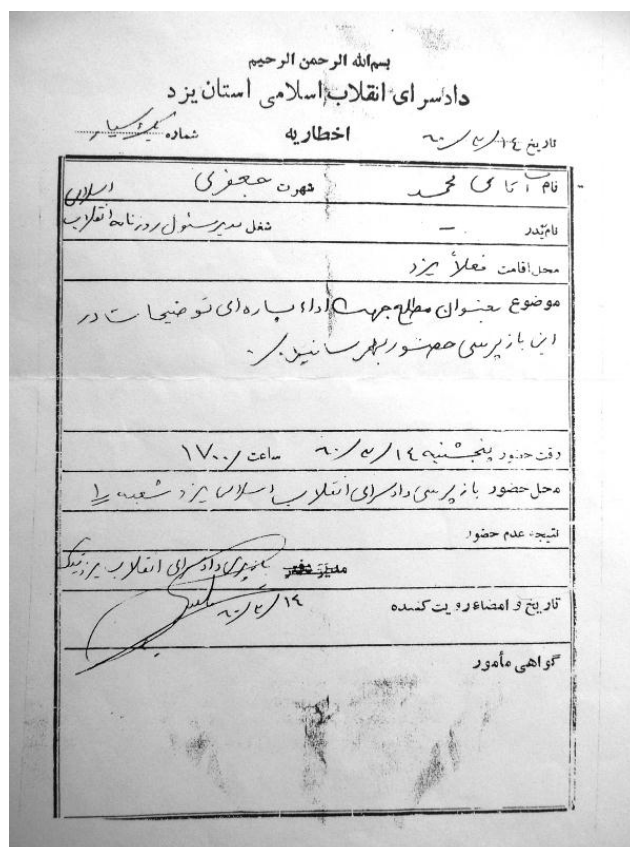 بسم‌الله الرحمن الرحیم
دادسرای انقلاب اسلامی استان یزد
اخطاریه
شماره
تاریخ ۶۰/۳/۱۴
نام آقای محمد شهرت جعفری
نام پدر - شغل مدیر مسئول روزنامه انقلاب اسلامی
محل اقامت فعلاً یزد
موضوع بعنوان مطلع جهت اداء پاره‌ای توضیحات در
این بازپرسی حضور بهم رسانید.
وقت حضور پنجشنبه ۶۰/۳/۱۴ ساعت ۱۷/۰۰
محل حضور بازپرسی دادسرای انقلاب اسلامی یزد شعبه ۱
نتیجه عدم حضور
مدیر دفتر بازپرسی دادسرای انقلاب یزد
تاریخ و امضاء رویت کننده ۶۰/۳/۱۴
گواهی مأمور